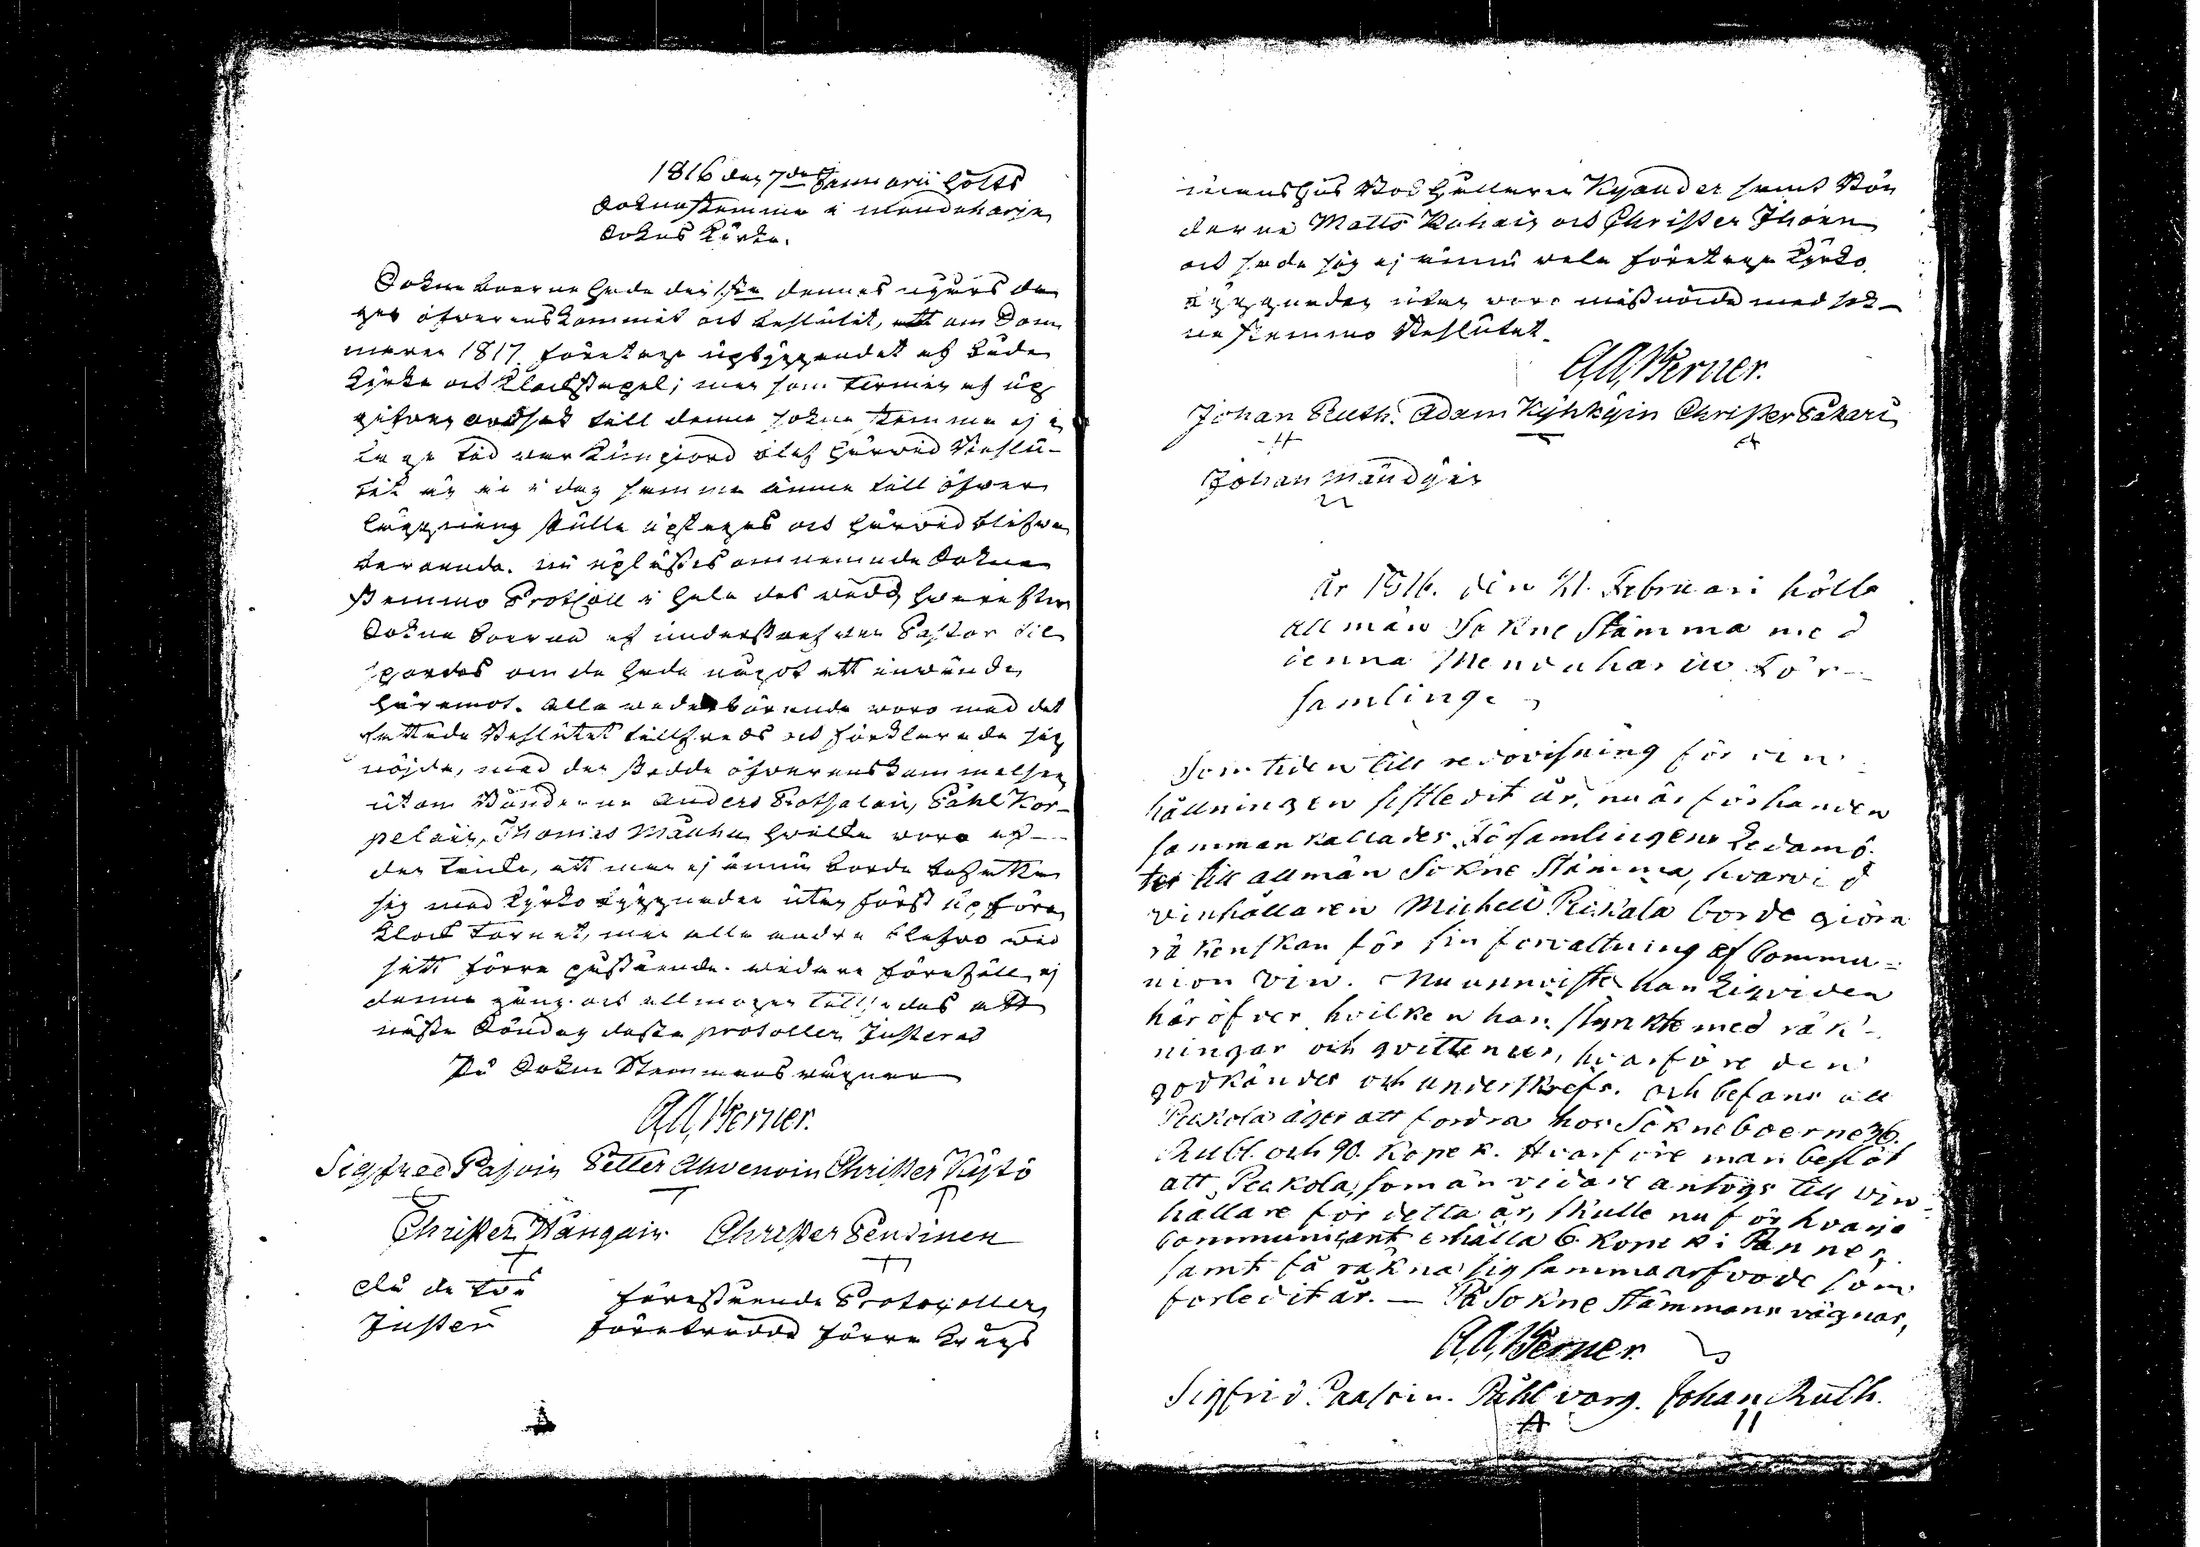 1816 den 7de Januarii hölts
Sokne stemma i Mendeharju
Sokns Kÿrka.
Sokneboerne hade den 1sta dennes nÿårs da
ges öfverenskommit och beslutit, att om Som
maren 1817 företaga upbÿggandet af både
Kÿrka och Klockstapel; men som termen af
till denna sokne stemma ej i
tid var Kungiord blef härvid Beslu-
tit at i dag samma ämne till öfver
läggning skulle uptagas och härvid blifva
beroende. nu uplästes omnemnde Sokne
stemmo Protocoll i hela des vidd, hvarefter
Sokne boerne af underskrefven Pastor til
spordes om de hade något att invända
häremot. Alla vederbörande voro med det
fattade Beslutet tillfreds och förklarade sig
nöjde, med den skedde öfverenskommelsen
utom Bönderne Anders Protsalain, Påhl Kor-
pelain, Thomas Mauhu hvilka voro af
den tanke, att man ej ännu borde befatta
sig med Kÿrko bÿggnaden utan först upföra
Klock tornet, men alla andra blefvo vid
sitt förra påstående. vidare föreföll ej
denna gång och allmogen tillsades att
näste Söndag desse protocoller Justeras
På Sokne Stemmans vägnar
A.A. Werner.
Sigfred Pasoin Petter Ahvenoin Christer Kÿstö
Christer Hängain Christer Pendinen
Då de tos förestående Protocoller
Juster förträdde förre Krigs
manshus Bokhållaren Kyander samt Bön
derne Matts Kahain och Christer Ihoin
och sade sig ej ännu vela företaga Kÿrko
bÿggnaden utan voro missnöjde med sok-
nestemmo Beslutet.
A.A. Werner.
Johan Ruth. Adam Kÿhkÿin Christer Pakari
Johan Mändÿin
År 1816. den 21. Februari hölls
allmän Sokne Stämma med
denna Menduharju För-
samling.
Som tiden till redovisning för vin
hållningen sistledit år, nu är förhanden
sammankallades Församlingens Ledamö
ter till allmän Sokne Stämma, hvarvid
vinhållaren Michell Pekala borde giöra
räkenskap för sin förvaltning af Commu-
nion vin. Nu annviste han Liqviden
häröfver hvilken han stynkte med räk-
ningar och qvittencer, hvarföre den
godkändes och underskrefs. och befans att
Peukola äger att fordra hos Sokneboerne 36.
Rubl. och 90. Kopek. Hvarföre man beslöt
att Peukola, som än vidare antogs till vin
hållare för detta år, skulle nu för hvarje
Communicant erhålla 6 Kopek i Banner,
samt få räkna sig samma arfvode som
förledit år. — På Sokne Stämmans vägnar,
A.A. Werner.
Sigfrid. Paasoin. Påhl varg. Johan Ruth.